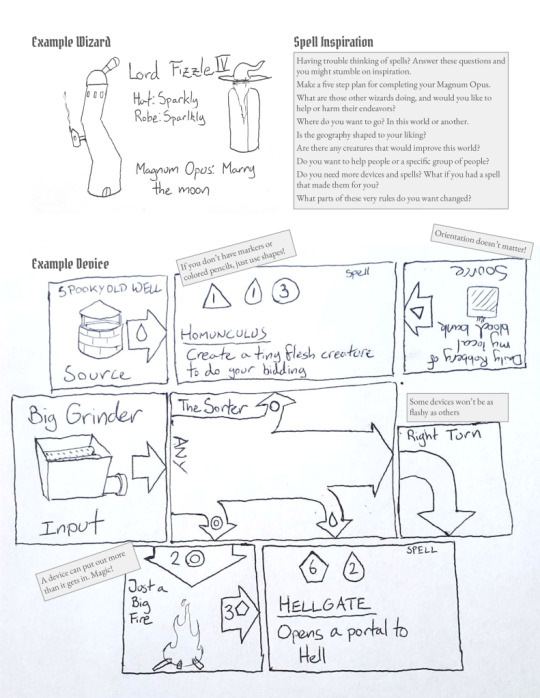 Example Wizard
Lord Fizzle IV
Hat: Sparkly
Robe: Sparlkly
Magnum Opus: Marry
the moon
Spell Inspiration
Having trouble thinking of spells? Answer these questions and
you might stumble on inspiration.
Make a five step plan for completing your Magnum Opus.
What are those other wizards doing, and would you like to
help or harm their endeavors?
Where do you want to go? In this world or another.
Is the geography shaped to your liking?
Are there any creatures that would improve this world?
Do you want to help people or a specific group of people?
Do you need more devices and spells? What if you had a spell
that made them for you?
What parts of these very rules do you want changed?
Example Device
If you don't have markers or
colored pencils, just use shapes!
Orientation doesn't matter!
SPOOKY OLD WELL
Source
Spell
1 1 3
HOMUNCULUS
Create a tiny flesh creature
to do your bidding
Daily Robbery of
my local
blood bank
Source
Big Grinder
Input
The Sorter
ANY
Some devices won't be as
flashy as others
Right Turn
A device can put out more
than it gets in. Magic!
2
Just a
Big
Fire
3
SPELL
6 2
HELLGATE
Opens a portal to
Hell